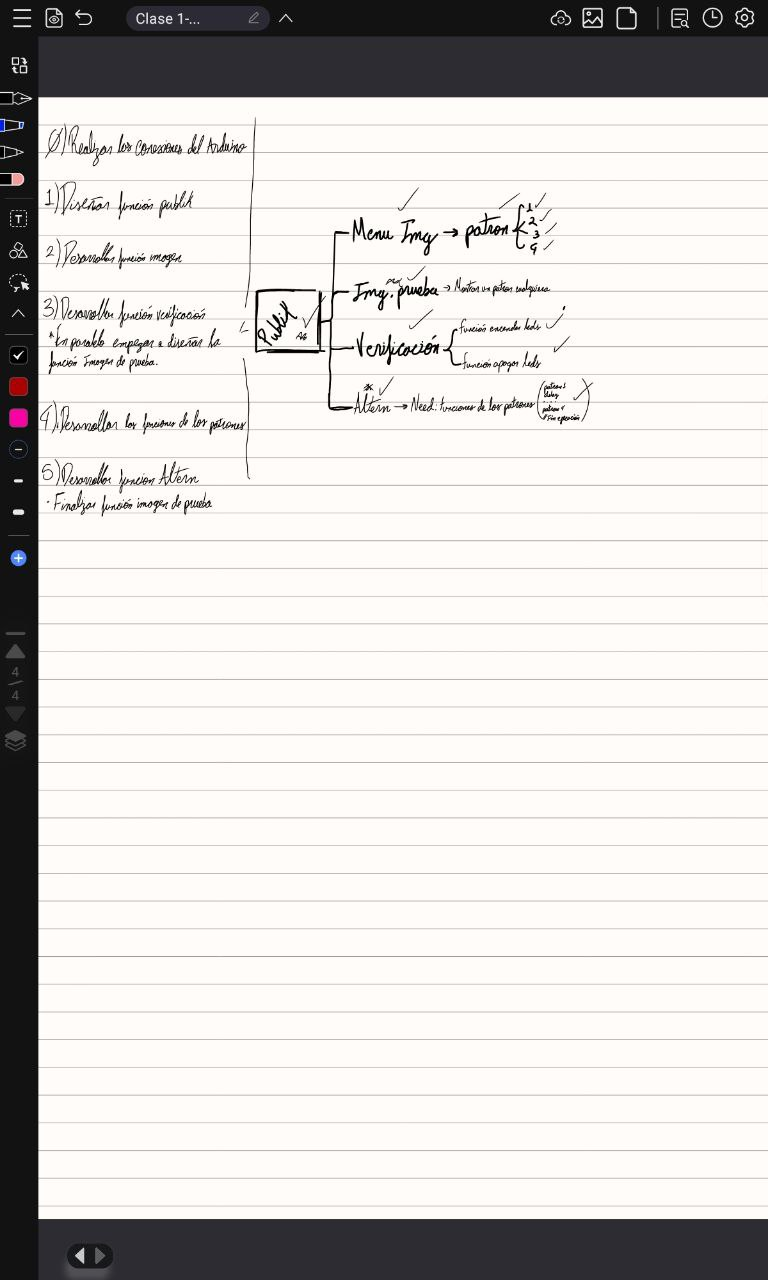 Clase 1-...
0) Realizar las conexiones del Arduino
1) Diseñar función publik
2) Desarrollar función imagen
3) Desarrollar función verificación
*En paralelo empezar a diseñar la
función Imagen de prueba.
4) Desarrollar las funciones de los patrones
5) Desarrollar función Altern
· Finalizar función imagen de prueba
Publik
Menu Img → patron { 1
2
3
4
Img. prueba → Mostrar un patron cualquiera
Verificación
función encender leds
función apagar leds
Altern → Need: funciones de los patrones
patron 1
Delay
T
4
4